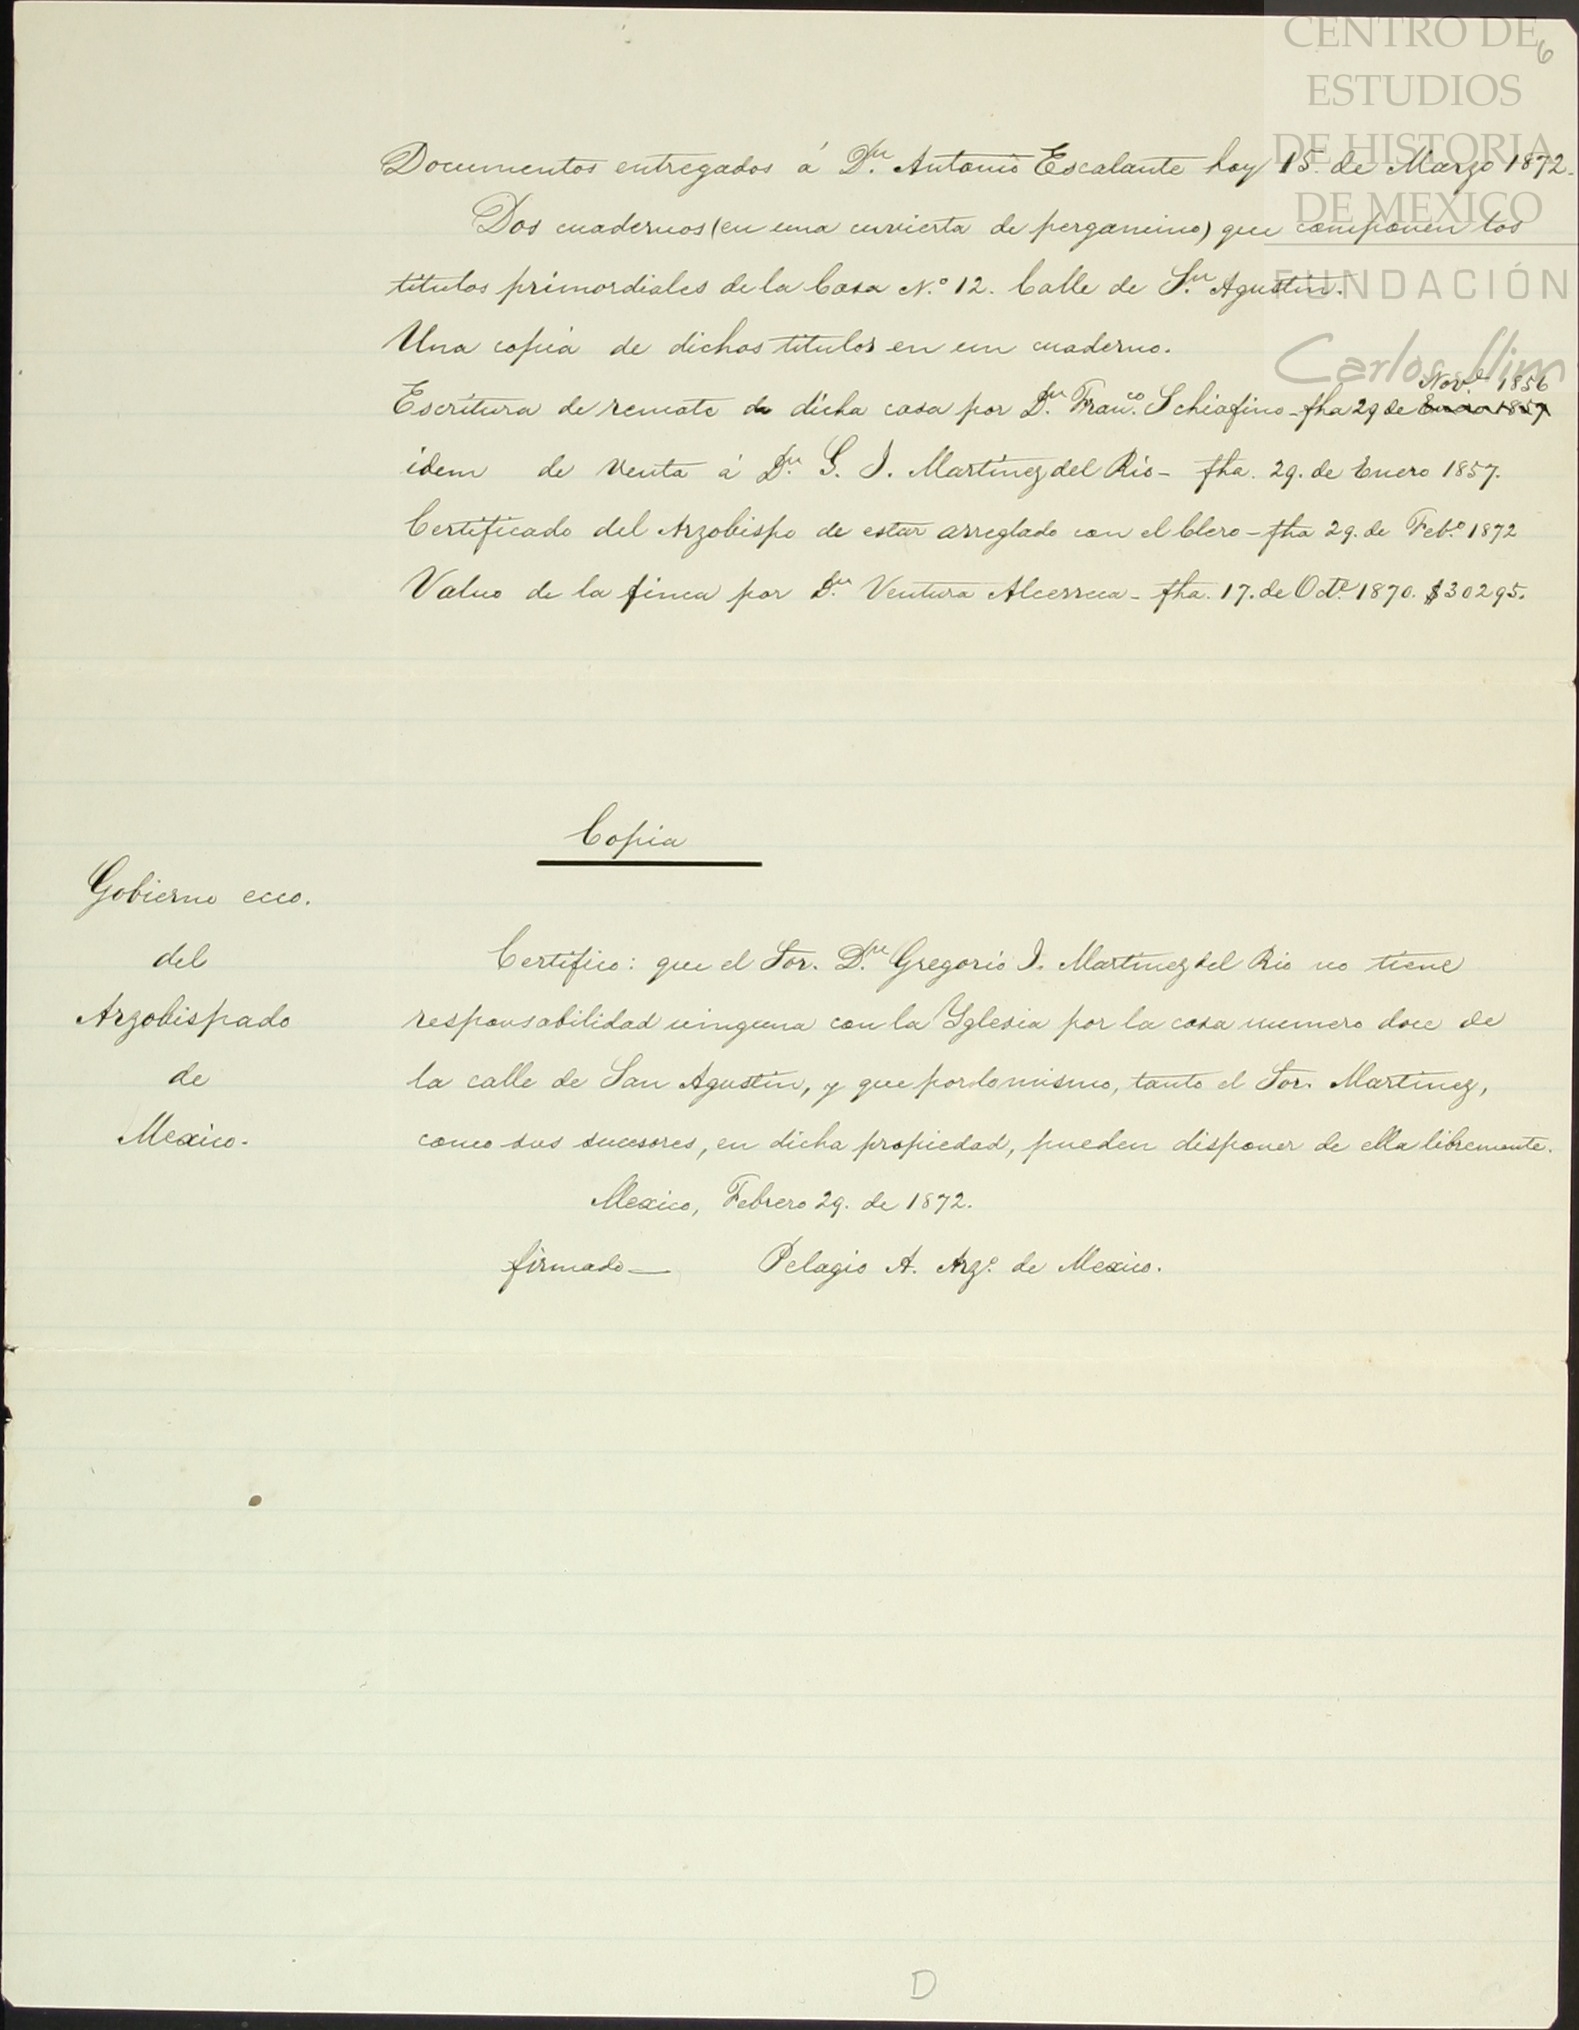 CENTRO DE
ESTUDIOS
DE HISTORIA
DE MEXICO
FUNDACIÓN
Carlos Slim
6
Documentos entregados á Dn. Antonio Escalante hoy 15. de Marzo 1872.
Dos cuadernos (en una cuvierta de pergamino) que componen los
titulos primordiales de la Casa N.o 12. Calle de Sn. Agustin.
Una copia de dichos titulos en un cuaderno.
Nov.e 1856
Escritura de remate de dicha casa por Dn. Franco. Schiafino - fha 29 de Enero 1857
idem de venta á Dn. G. J. Martinez del Rio - fha. 29. de Enero 1857.
Certificado del Arzobispo de estar arreglado con el Clero - fha 29. de Feb.o 1872
Valuo de la finca por Dn. Ventura Alcerreca - fha. 17. de Oct.e 1870. $30295.
Copia
Gobierno ecco.
del
Arzobispado
de
Mexico.
Certifico: que el Sor. Dn. Gregorio J. Martinez del Rio no tiene
responsabilidad ninguna con la Yglesia por la casa numero doce de
la calle de San Agustin, y que por lo mismo, tanto el Sor. Martinez,
como sus sucesores, en dicha propiedad, pueden disponer de ella libremente.
Mexico, Febrero 29. de 1872.
firmado — Pelagio A. Arzo. de Mexico.
D